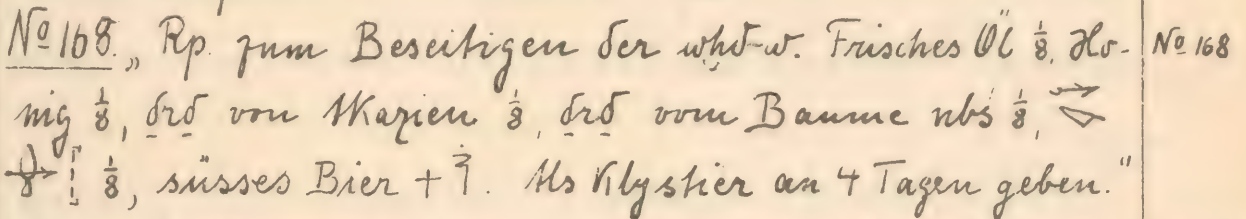 № 168. „Rp. zum Beseitigen der wḫd-w. Frisches Öl ⅛, Ho- № 168
nig ⅛, drd von Akazien ⅛, drd vom Baume nbs ⅛,
⅛, süsses Bier + ? . Als Klystier an 4 Tagen geben."